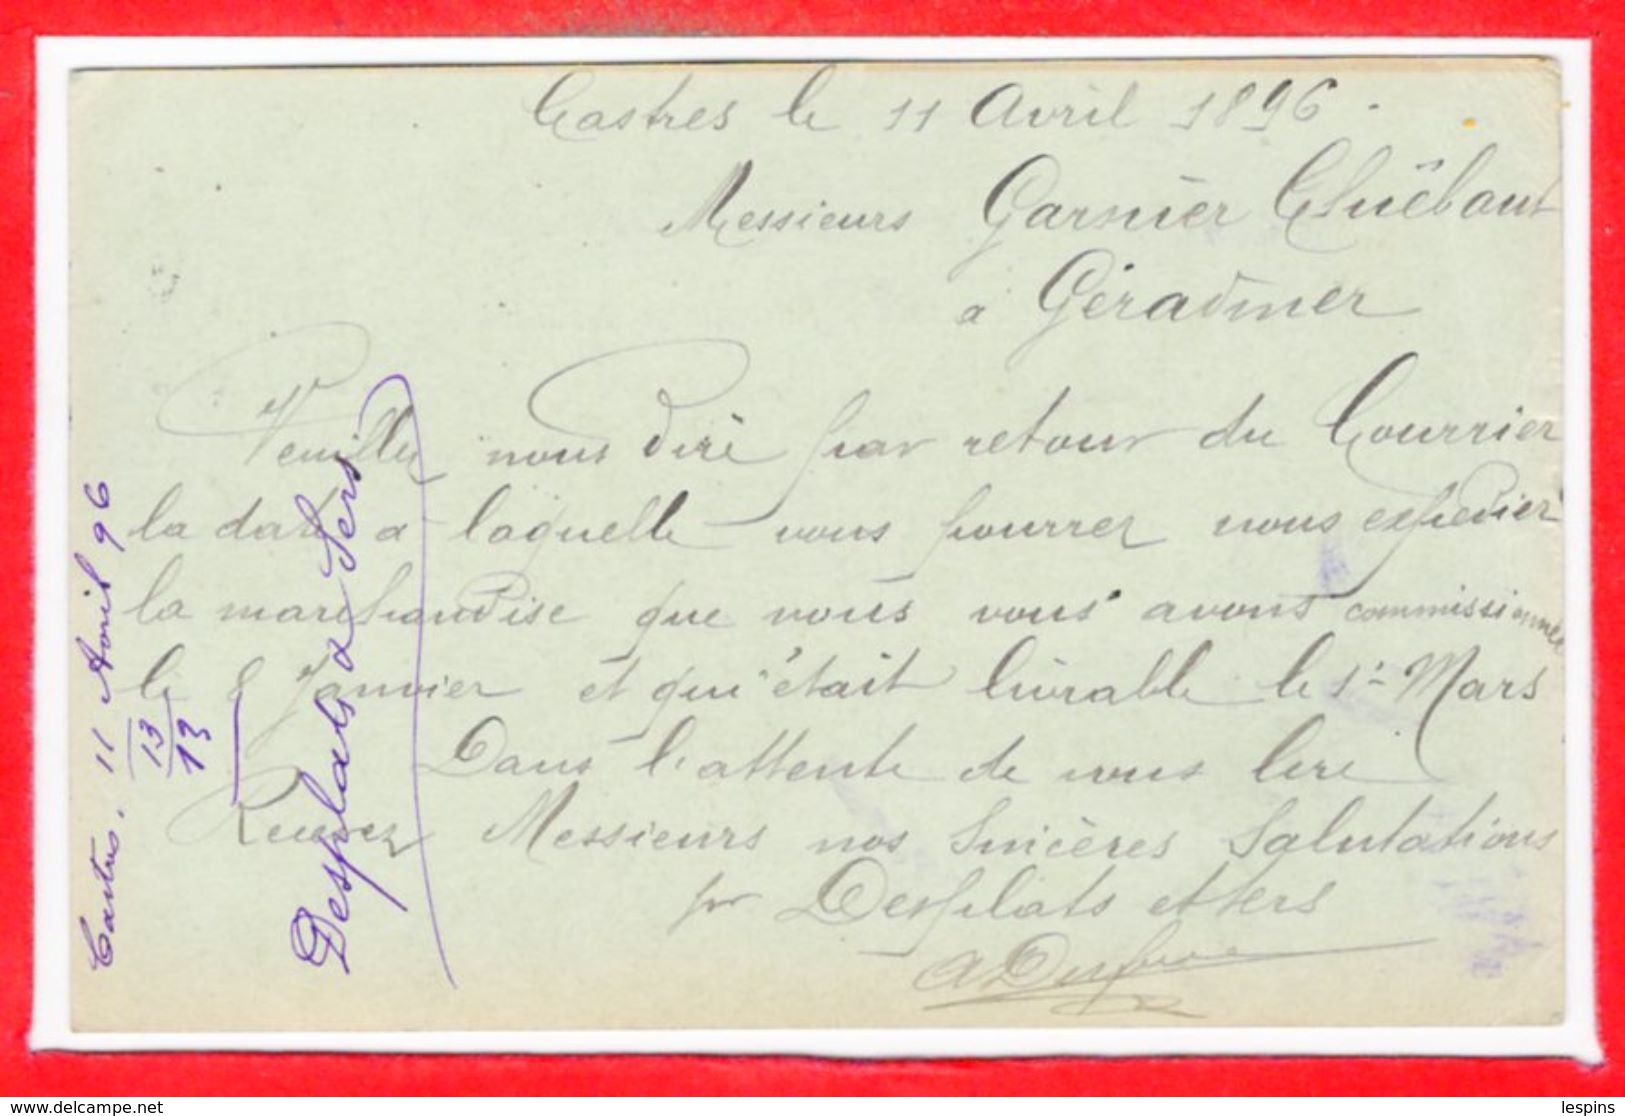 Castres le 11 Avril 1896.
Messieurs Garnier Thiébaut
a Géradmer
Veuillez nous dire par retour du Courrier
la date a laquelle vous pourrez nous expedier
la marchandise que nous vous avons commissionnée
le 8 Janvier et qui était livrable le 1r Mars
Dans l'attente de vous lire
Recevez Messieurs nos Sincères Salutations
pr Desplats et Sers
Castres. 11 Avril 96
13
13
Desplats & Sers
delcampe.net
lespins